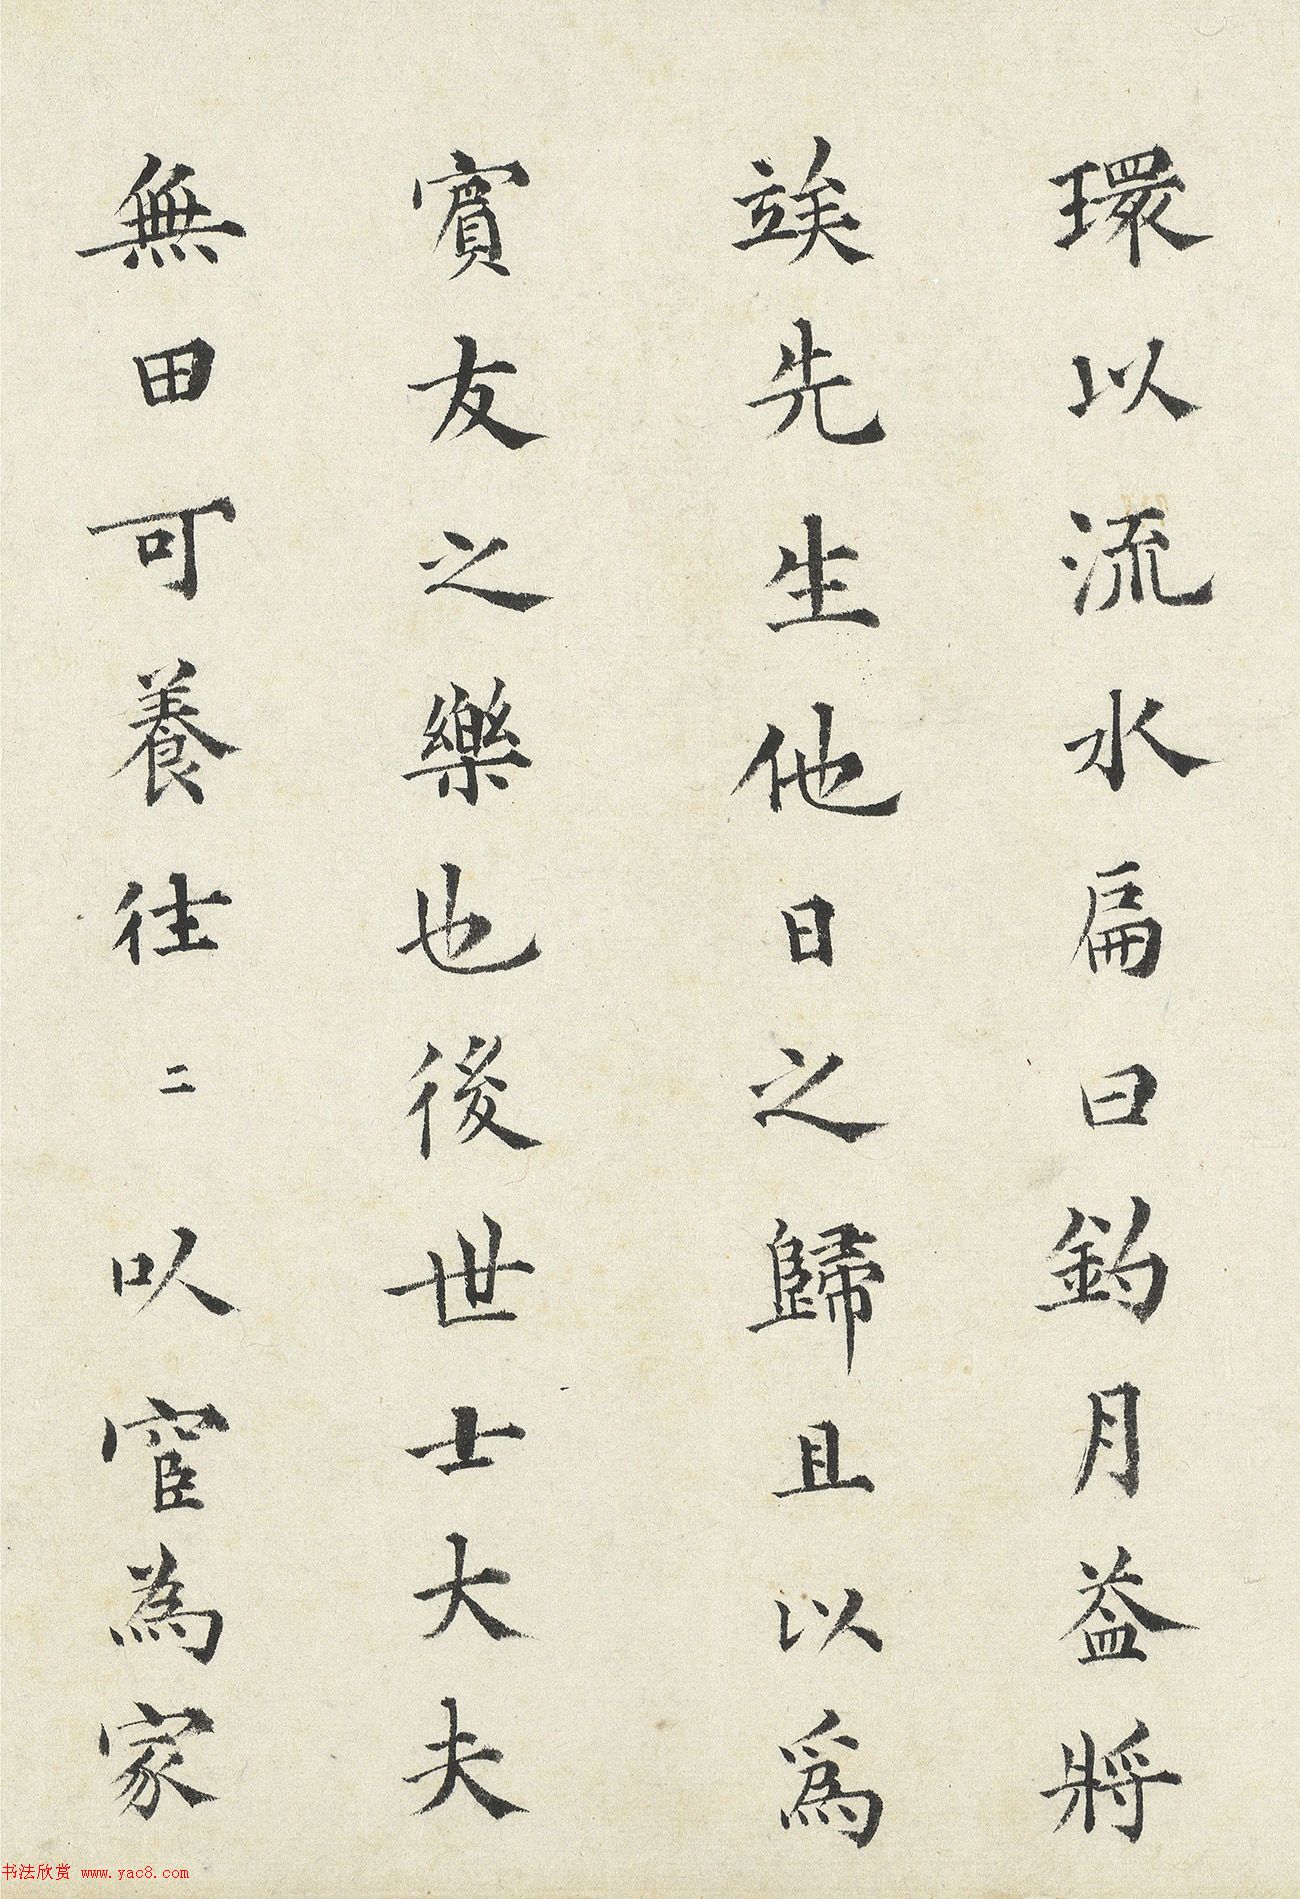 環以流水扁曰釣月益將
竢先生他日之歸且以爲
賓友之樂也後世士大夫
無田可養往二以宦為家
书法欣赏 www.yac8.com